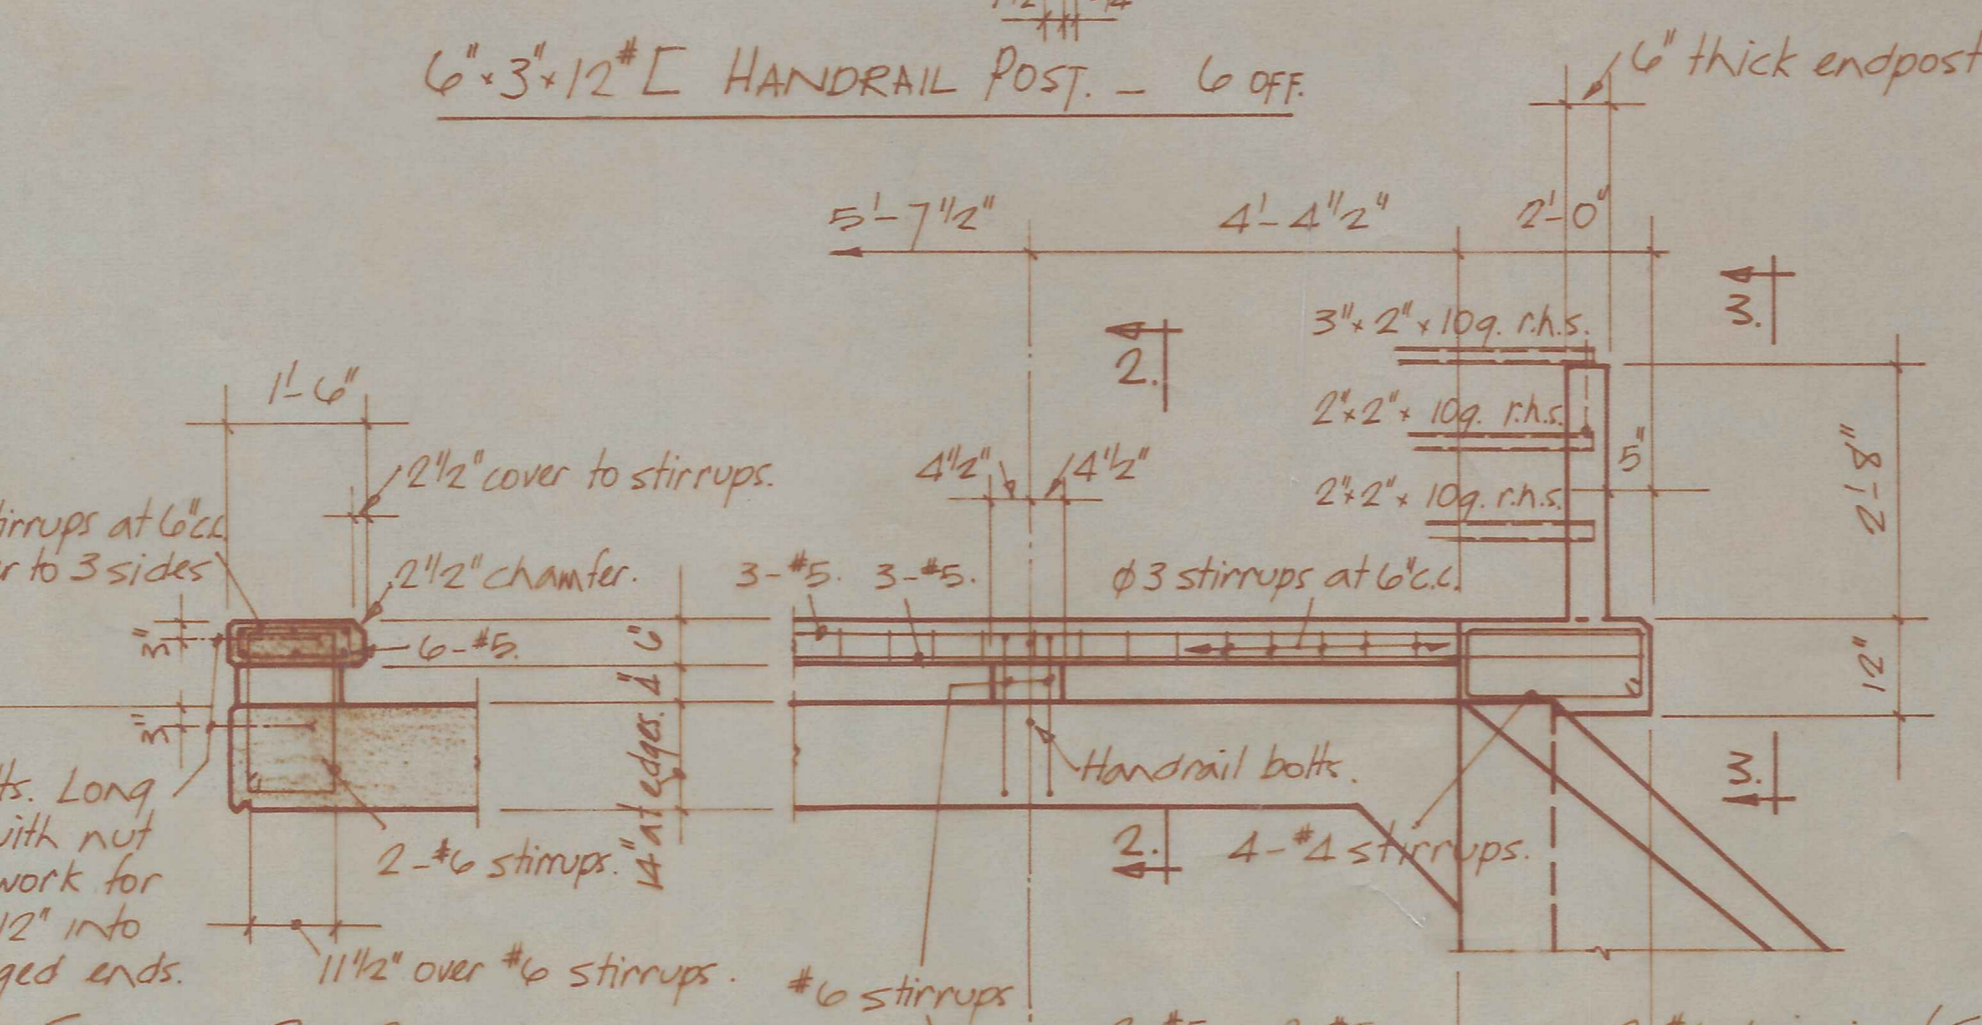 6"×3"×12# [ HANDRAIL POST. – 6 OFF.
6" thick endpost
5'-7½"
4'-4½"
2'-0"
3.
2.
3"×2"×10g. r.h.s.
2"×2"× 10g. r.h.s.
2"×2"× 10g. r.h.s.
5"
2'-8"
1'-6"
2½" cover to stirrups.
4½"
4½"
at 6"c.c.
to 3 sides
2½" chamfer.
3-#5.
3-#5.
φ3 stirrups at 6"c.c.
3"
6-#5.
6"
4"
14" at edges.
12"
3"
Handrail bolts.
3.
Long
with nut
work for
12" into
ends.
2-#6 stirrups.
2.
4-#4 stirrups.
11½" over #6 stirrups.
#6 stirrups